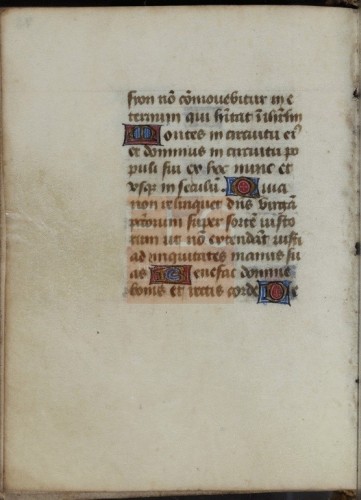 syon nō cōmovebitur in e
ternum qui hitat ī ihrlm
Montes in circuitu eiꝰ
et dominus in circuitu po
puli sui ex hoc nunc et
usqꝫ in seculū. Quia
non relinquet dn̄s virgā
peccatorum super sortē iusto
rum ut nō extendāt iusti
ad iniquitates manus su
as Benefac domine
bonis et rectis corde De